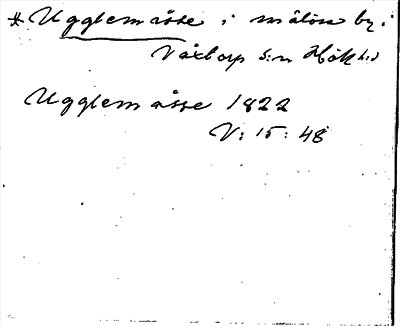 * Ugglemåsse i målön by i
Våxtorp s:n Hök h:d
Ugglemåsse 1822
V: 15: 48